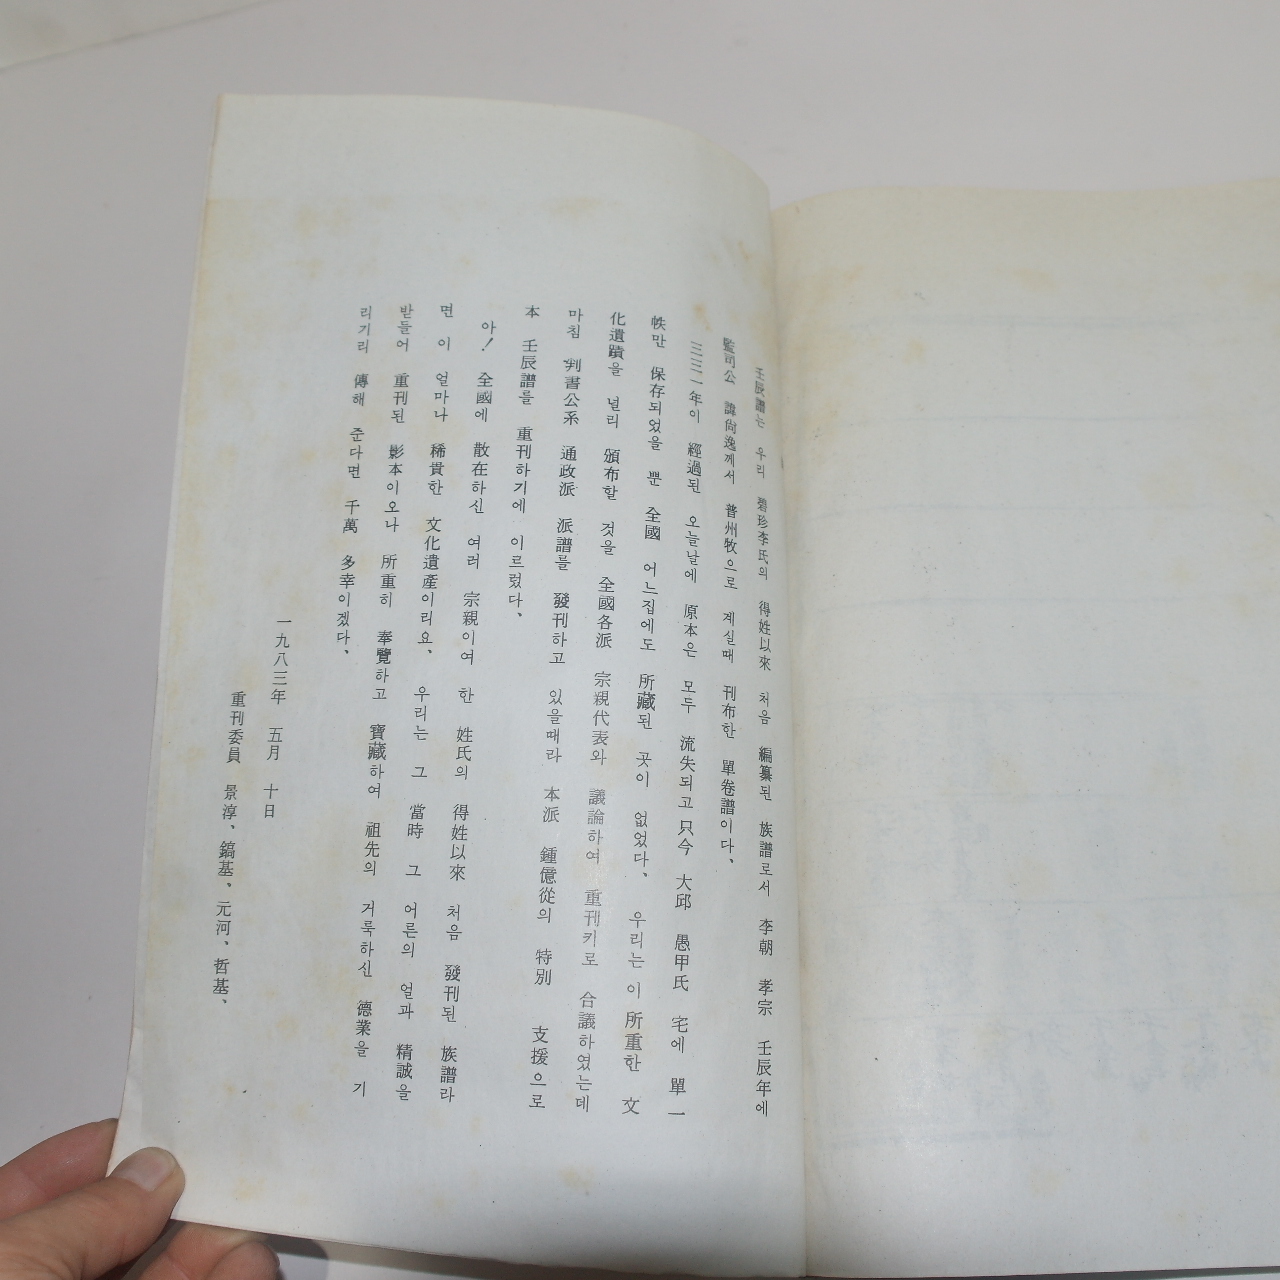 壬辰譜는 우리 碧珍李氏의 得姓以來 처음 編纂된 族譜로서 李朝 孝宗 壬辰年에
監司公 諱尙逸께서 普州牧으로 계실때 刊布한 單卷譜이다、
三三一年이 經過된 오늘날에 原本은 모두 流失되고 只今 大邱 愚甲氏 宅에 單一
帙만 保存되었을 뿐 全國 어느집에도 所藏된 곳이 없었다、 우리는 이 所重한 文
化遺蹟을 널리 頒布할 것을 全國各派 宗親代表와 議論하여 重刊키로 合議하였는데
마침 判書公系 通政派 派譜를 發刊하고 있을때라 本派 鍾億從의 特別 支援으로
本 壬辰譜를 重刊하기에 이르렀다、
아! 全國에 散在하신 여러 宗親이여 한 姓氏의 得姓以來 처음 發刊된 族譜라
면 이 얼마나 稀貴한 文化遺產이리요、 우리는 그 當時 그 어른의 얼과 精誠을
받들어 重刊된 影本이오나 所重히 奉覽하고 寶藏하여 祖先의 거룩하신 德業을 기
리기리 傳해 준다면 千萬 多幸이겠다、
一九八三年 五月 十日
重刊委員 景淳、鎬基、元河、哲基、